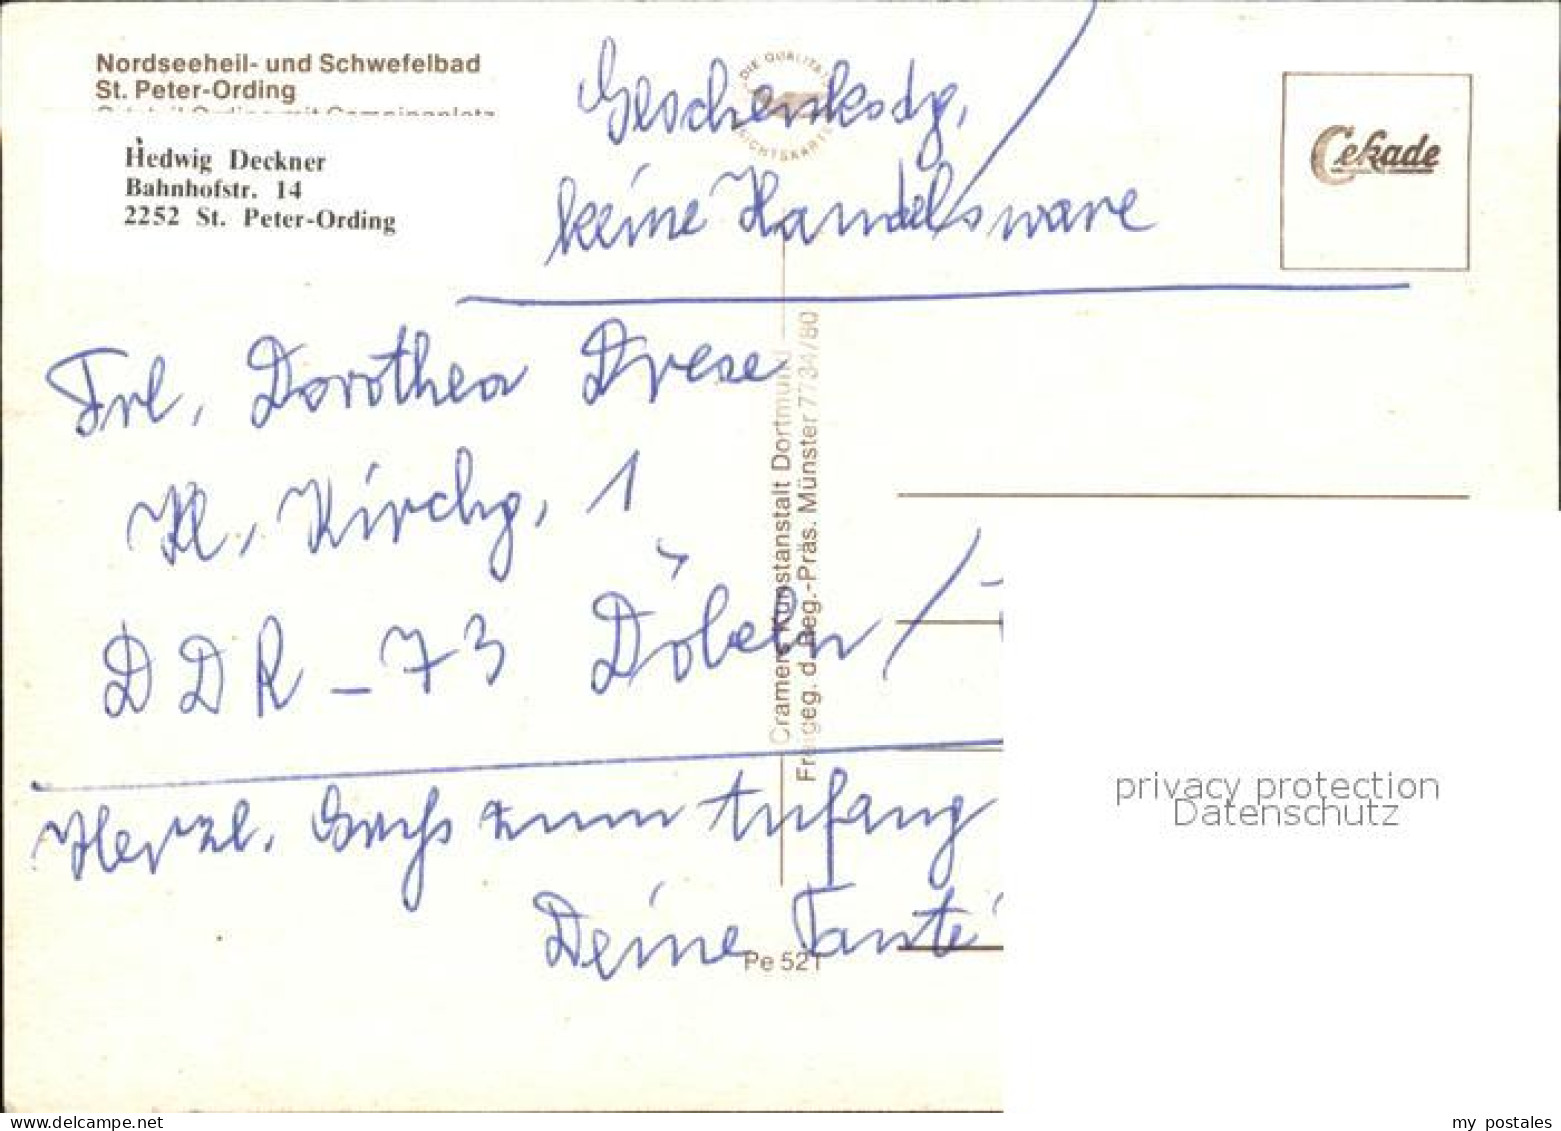 Nordseeheil- und Schwefelbad
St. Peter-Ording
Hedwig Deckner
Bahnhofstr. 14
2252 St. Peter-Ording
DIE QUALITÄTS
Geschenksdg,
keine Handelsware
Cekade
Frl. Dorothea Drese
Kl. Kirchg. 1
DDR - 73 Döbeln /
Cramers Kunstanstalt Dortmund
Freigeg. d. Reg.-Präs. Münster 7734/80
Herzl. zum Anfang
Deine Tante
Pe 521
privacy protection
Datenschutz
delcampe.net
my_postales